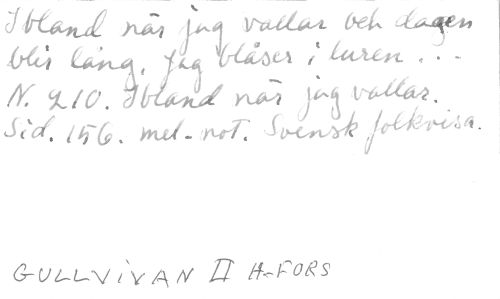 Ibland när jag vallar och dagen
blir lång, jag blåser i luren...
N. 210. Ibland när jag vallar.
Sid. 156. mel-not. Svensk folkvisa.
GULLVIVAN II H-FORS